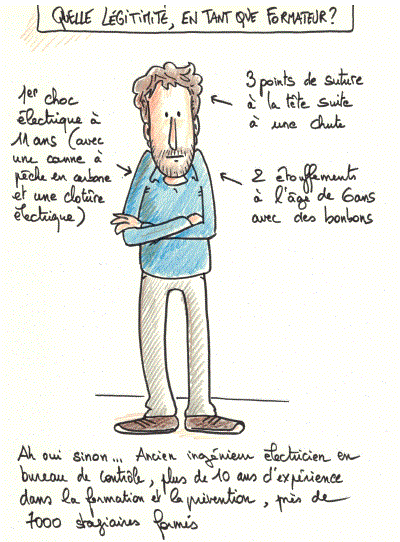 QUELLE LÉGITIMITÉ, EN TANT QUE FORMATEUR?
1er choc
électrique à
11 ans (avec
une canne à
pêche en carbone
et une clôture
électrique)
3 points de suture
à la tête suite
à une chute
2 étouffements
à l'âge de 6 ans
avec des bonbons
Ah oui sinon... Ancien ingénieur électricien en
bureau de contrôle, plus de 10 ans d'expérience
dans la formation et la prévention, près de
7000 stagiaires formés